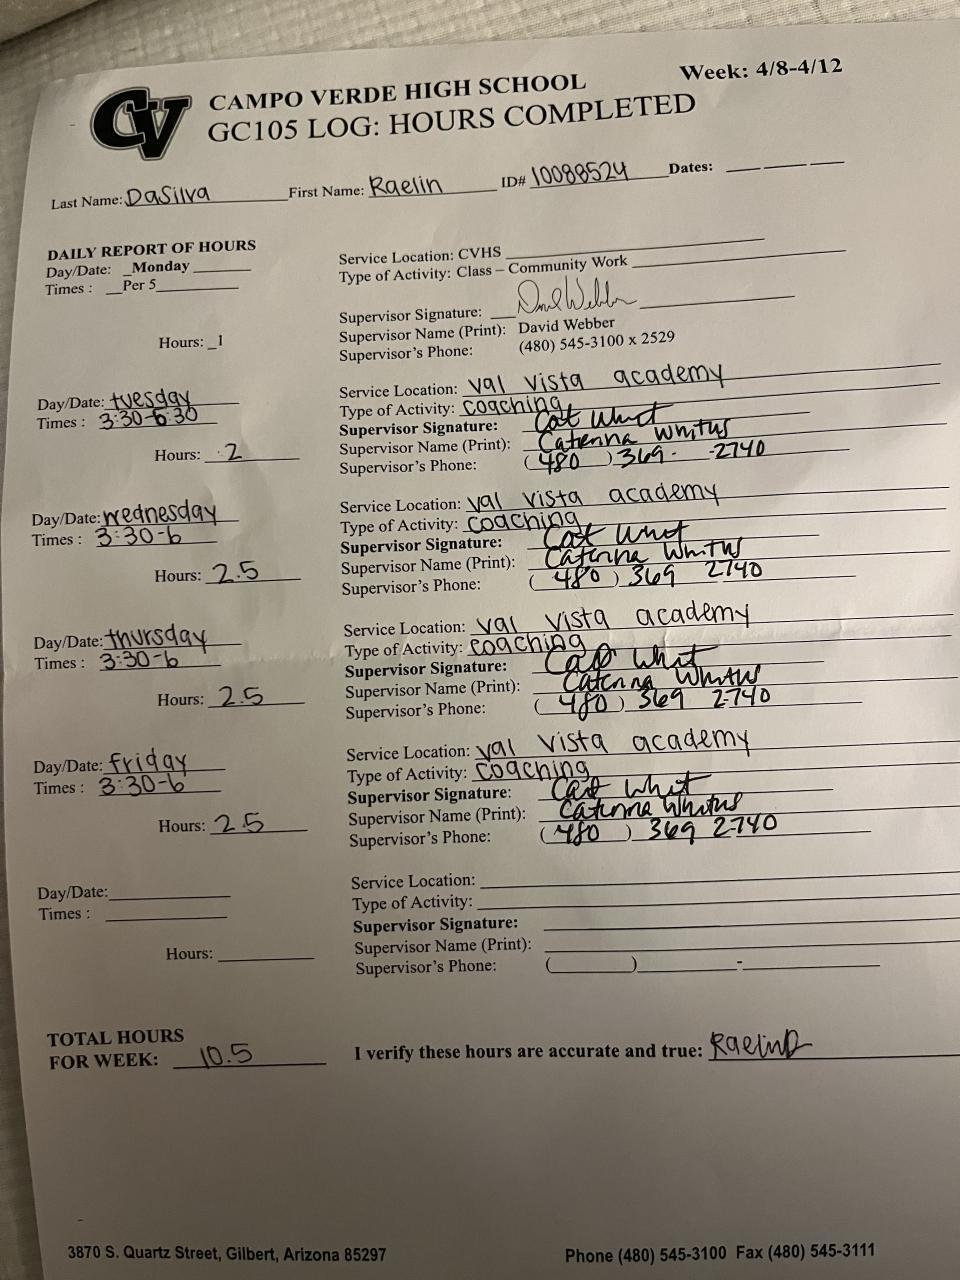 CV
CAMPO VERDE HIGH SCHOOL Week: 4/8-4/12
GC105 LOG: HOURS COMPLETED
Last Name: DaSilva First Name: Raelin ID# 10088524 Dates: ___ ___ ___
DAILY REPORT OF HOURS
Day/Date: _Monday
Times : __Per 5
Hours: _1
Service Location: CVHS
Type of Activity: Class – Community Work
Supervisor Signature: David Webber
Supervisor Name (Print): David Webber
Supervisor's Phone: (480) 545-3100 x 2529
Day/Date: tuesday
Times : 3:30-6:30
Hours: 2
Service Location: val vista academy
Type of Activity: coaching
Supervisor Signature: Cat Whit
Supervisor Name (Print): Caterina Whitus
Supervisor's Phone: (480) 369- -2740
Day/Date: wednesday
Times : 3:30-6
Hours: 2.5
Service Location: val vista academy
Type of Activity: coaching
Supervisor Signature: Cat Whit
Supervisor Name (Print): Caterina Whitus
Supervisor's Phone: (480) 369 2740
Day/Date: thursday
Times : 3:30-6
Hours: 2.5
Service Location: val vista academy
Type of Activity: coaching
Supervisor Signature: Cat Whit
Supervisor Name (Print): Caterina Whitus
Supervisor's Phone: (480) 369 2740
Day/Date: friday
Times : 3:30-6
Hours: 2.5
Service Location: val vista academy
Type of Activity: coaching
Supervisor Signature: Cat Whit
Supervisor Name (Print): Caterina Whitus
Supervisor's Phone: (480) 369 2740
Day/Date:
Times :
Hours:
Service Location:
Type of Activity:
Supervisor Signature:
Supervisor Name (Print):
Supervisor's Phone: ( ) -
TOTAL HOURS
FOR WEEK: 10.5
I verify these hours are accurate and true: Raelin D
3870 S. Quartz Street, Gilbert, Arizona 85297 Phone (480) 545-3100 Fax (480) 545-3111